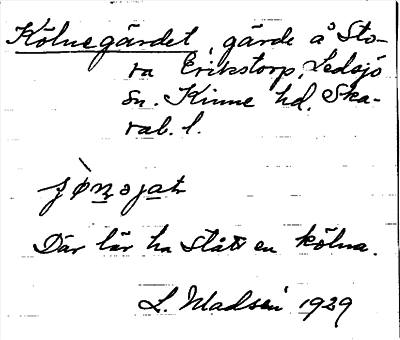 Kölnegärdet, gärde å Sto-
ra Erikstorp, Ledsjö
sn. Kinne hd, Ska-
rab. l.
Där lär ha stått en kölna.
L. Madsén 1929